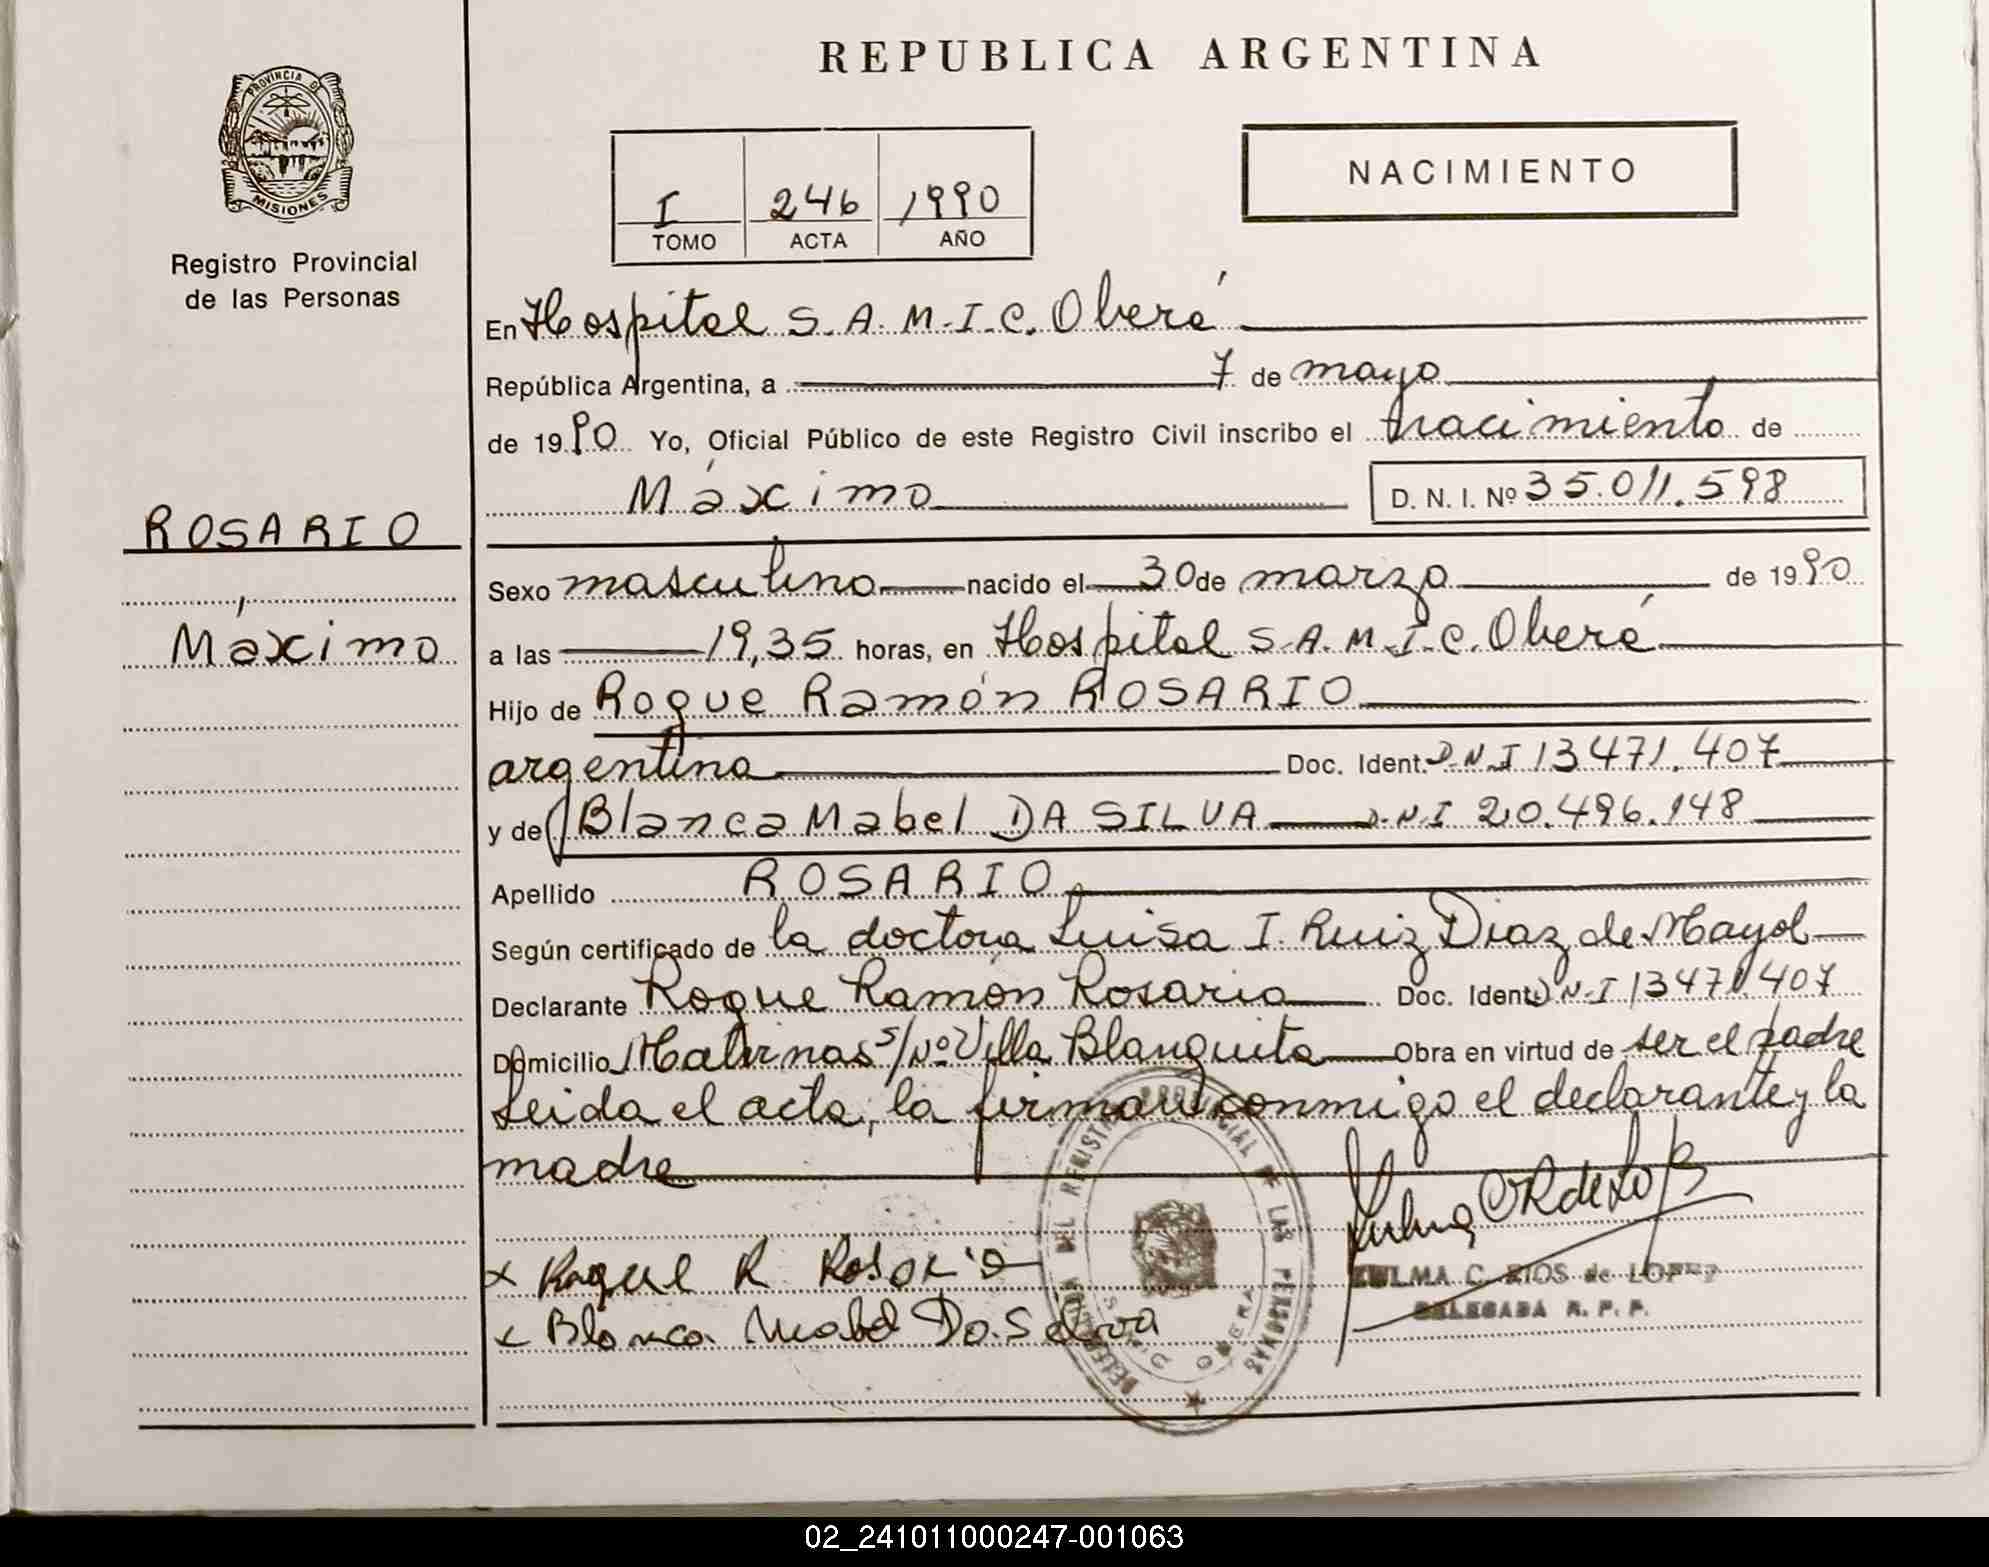 REPUBLICA ARGENTINA
PROVINCIA DE
MISIONES
Registro Provincial
de las Personas
NACIMIENTO
I 246 1990
TOMO ACTA AÑO
En Hospital S.A.M.I.C. Oberá
República Argentina, a 7 de mayo
de 1990 Yo, Oficial Público de este Registro Civil inscribo el nacimiento de
Máximo D. N. I. Nº 35.011.598
ROSARIO
Máximo
Sexo masculino nacido el 30 de marzo de 1990
a las 19,35 horas, en Hospital S.A.M.I.C. Oberá
Hijo de Roque Ramón ROSARIO
argentina Doc. Ident. D.N.I 13471.407
y de Blanca Mabel DA SILVA D.N.I 20.496.148
Apellido ROSARIO
Según certificado de la doctora Luisa I. Ruiz Diaz de Mayol
Declarante Roque Ramón Rosario Doc. Ident. D.N.I 13471.407
Domicilio Malvinas s/Nº Villa Blanquita Obra en virtud de ser el padre
Leida el acta, la firman conmigo el declarante y la
madre
x Roque R Rosario
x Blanca Mabel Da Silva
ZULMA C. RIOS de LOPEZ
DELEGADA R. P. P.
02_241011000247-001063